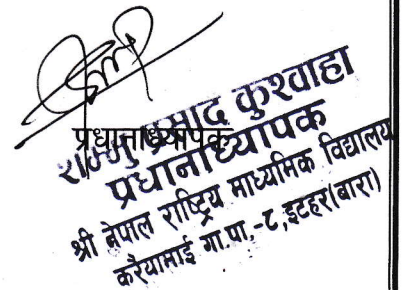 प्रधानाध्यापक
शम्भु प्रसाद कुश्वाहा
प्रधानाध्यापक
श्री नेपाल राष्ट्रिय माध्यमिक विद्यालय
करैयामाई गा.पा.-८,इटहर(बारा)